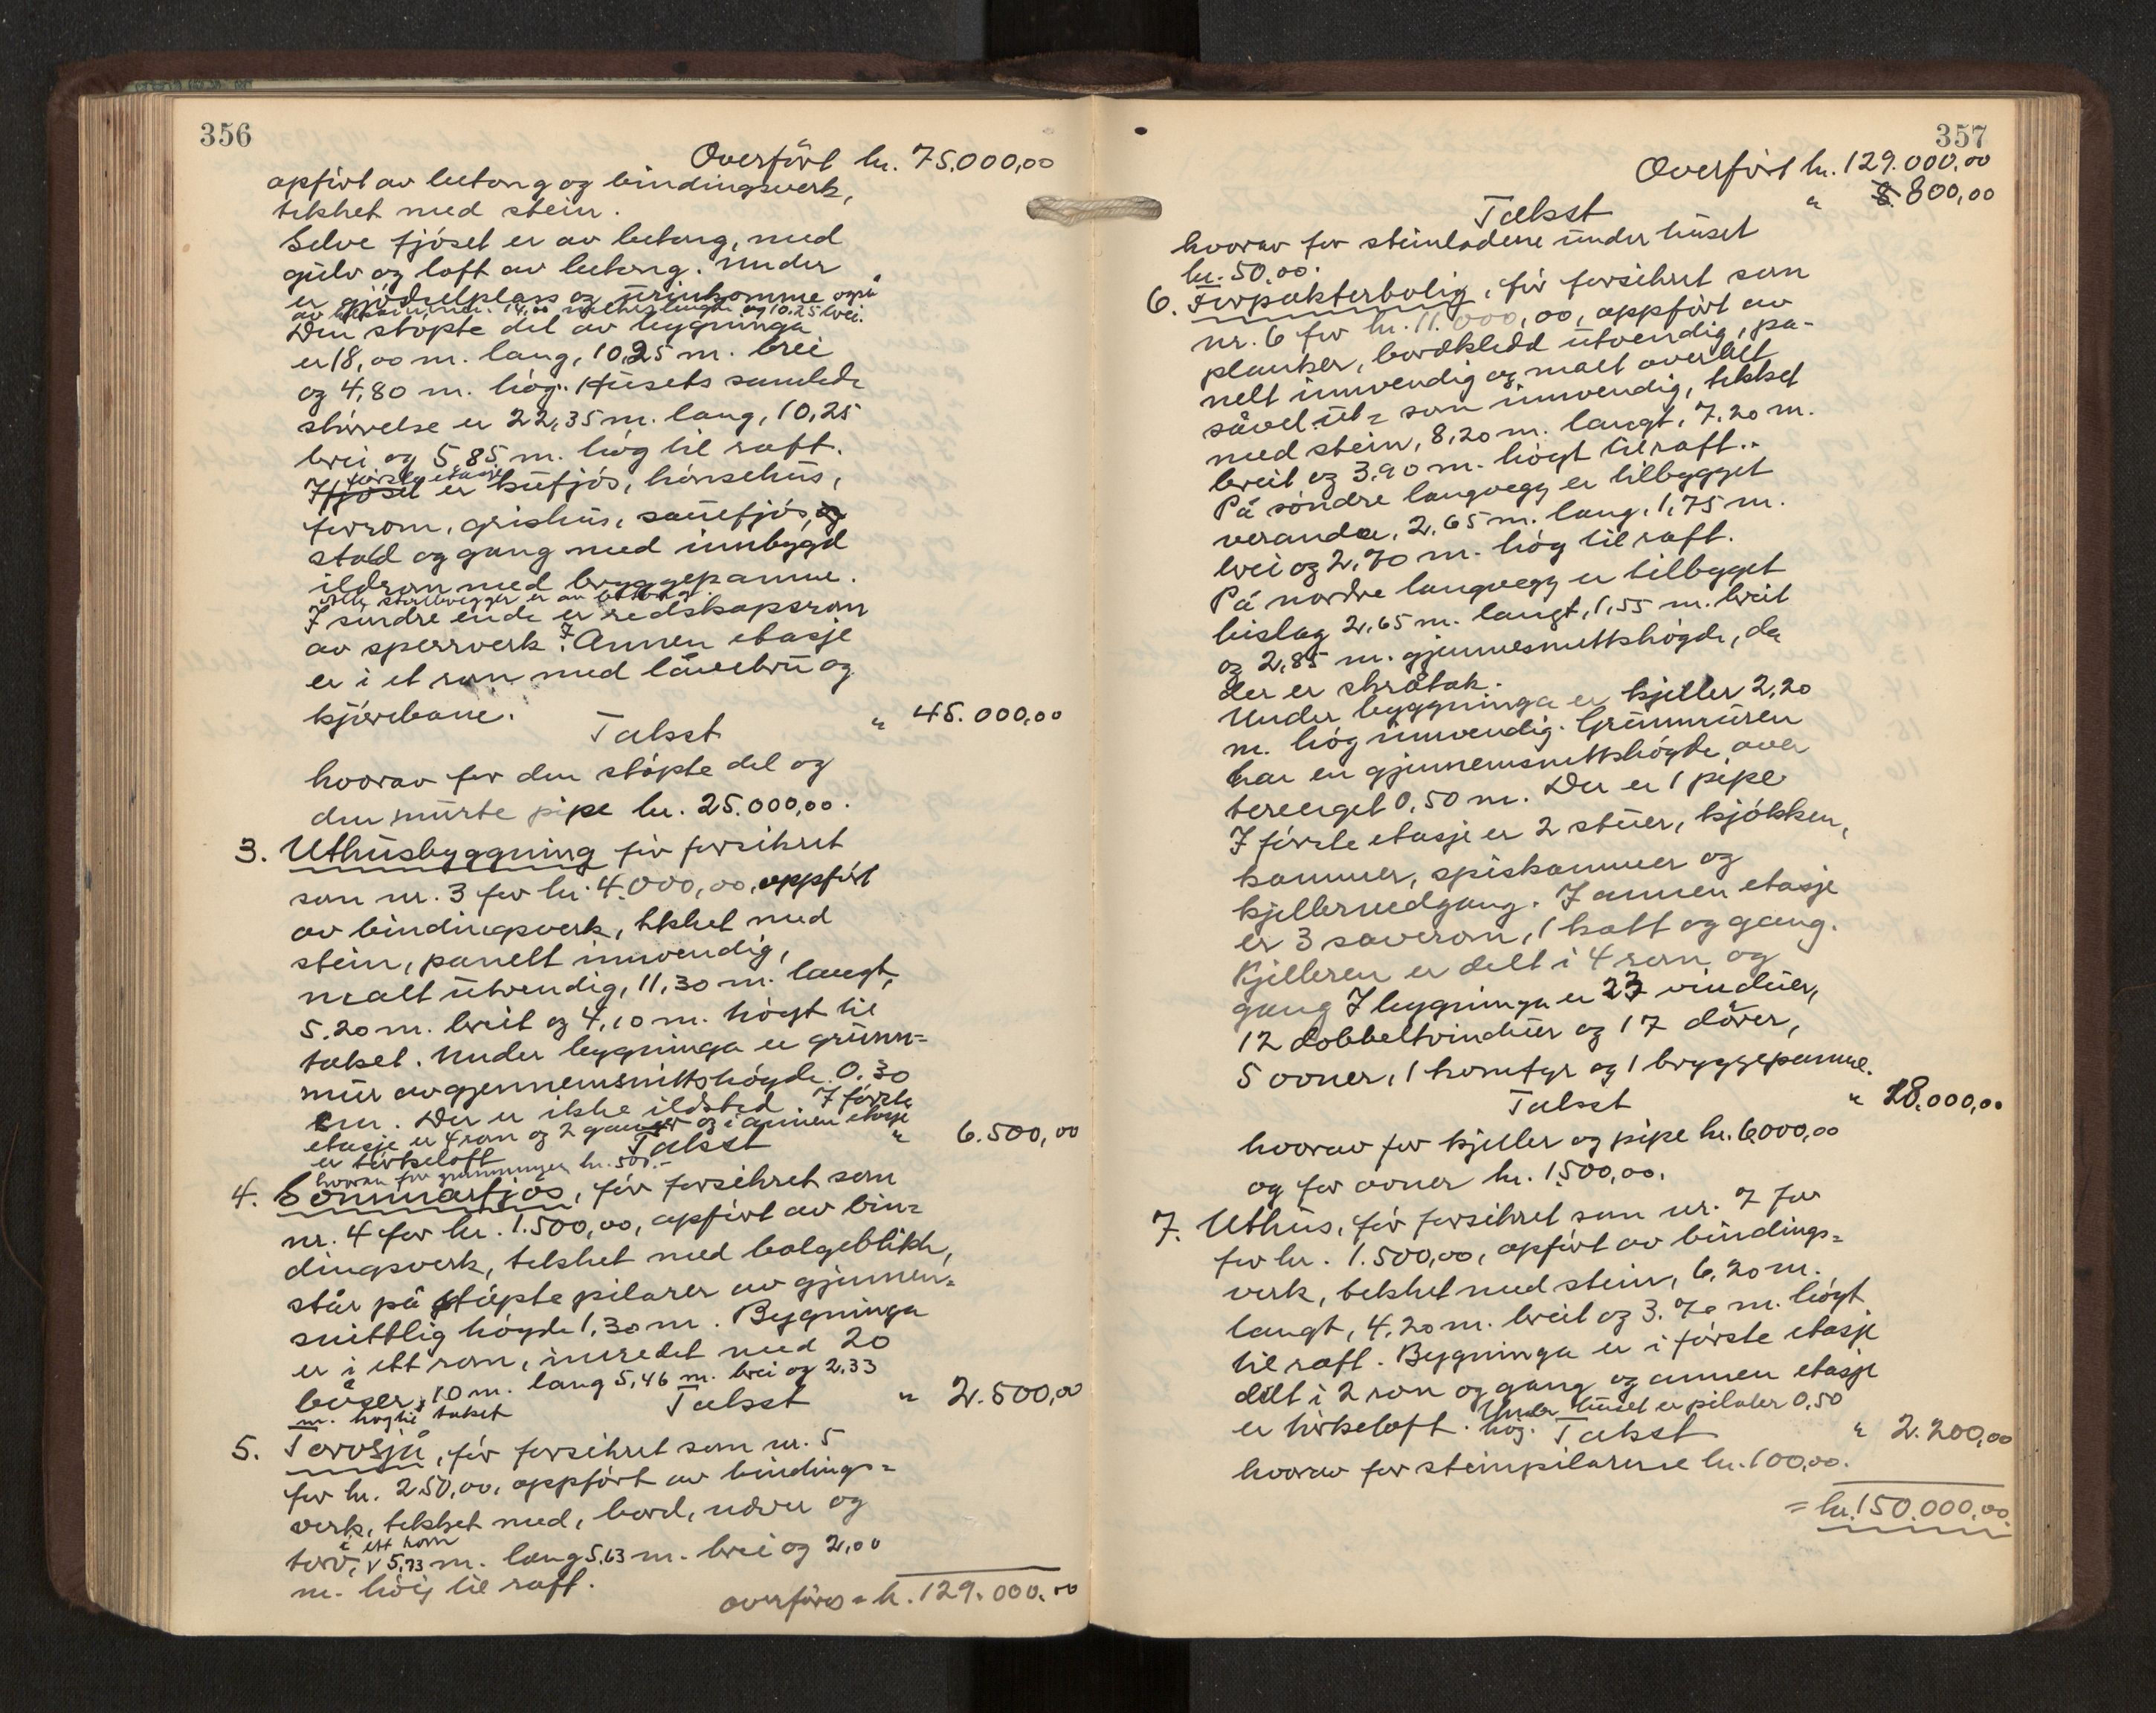 356
Overført kr. 75.000,00
opført av betong og bindingsverk,
tekket med stein.
Selve fjøset er av betong, med
gulv og loft av betong. Under
er gjødselplass og urinkomme også
av betong, 10.25 brei.
Den støpte del av bygninga
er 18,00 m. lang, 10,25 m. brei
og 4,80 m. høg. Husets samlede
størrelse er 22,35 m. lang, 10,25
brei og 5,85 m. høg til raft.
I fjøset første etasje er kufjøs, hønsehus,
forrom, grishus, sauefjøs, og
stall og gang med innbygd
ildrom med bryggepanne.
Alle skillevegger er av betong.
I søndre ende er redskapsrom
av sperrverk. I Annen etasje
er i et rom med låvebru og
kjørebane.
Takst " 45.000,00
hvorav for den støpte del og
den murte pipe kr. 25.000,00.
3. Uthusbyggning før forsikret
som nr. 3 for kr. 4.000,00, oppført
av bindingsverk, tekket med
stein, panelt innvendig,
malt utvendig, 11,30 m. langt,
5.20 m. breit og 4,10 m. høgt til
taket. Under bygninga er grunn-
mur av gjennemsnittshøgde 0.30
cm. Der er ikke ildsted. I første
etasje er 4 rom og 2 ganger og i annen etasje
er tørkeloft Takst " 6.500,00
hvorav for grunnmuren kr. 500.-
4. Sommarfjøs, før forsikret som
nr. 4 for kr. 1.500,00, opført av bin-
dingsverk, tekket med bølgeblikk,
står på støpte pilarer av gjennem-
snittlig høgde 1,30 m. Bygninga
er i ett rom, inredet med 20
båser, 10 m. lang 5,46 m. brei og 2,33
m. høg til taket Takst " 2.500,00
5. Torvsjå, før forsikret som nr. 5
for kr. 250,00, oppført av bindings-
verk, tekket med, bord, never og
torv, i ett rom 5,73 m. lang 5,63 m. brei og 2,00
m. høg til raft.
overføres = k. 129.000.00
357
Overført kr. 129.000,00
Takst " 8. 800,00
hvorav for steinladene under huset
kr. 50.00.
6. Forpakterbolig, før forsikret som
nr. 6 for kr. 11.000,00, oppført av
planker, bordkledd utvendig, pa-
nelt innvendig og malt overalt
såvel ut- som innvendig, tekket
med stein, 8,20 m. langt, 7,20 m.
breit og 3,90 m. høgt til raft.
På søndre langvegg er tilbygget
veranda, 2,65 m. lang, 1,75 m.
brei og 2,70 m. høg til raft.
På nordre langvegg er tilbygget
bislag 2,65 m. langt, 1,55 m. breit
og 2,85 m. gjennesnittshøgde, da
der er skråtak.
Under byggninga er kjeller 2,20
m. høg innvendig. Grunnmuren
har en gjennemsnittshøgde over
terrenget 0,50 m. Der er 1 pipe
I første etasje er 2 stuer, kjøkken,
kammer, spiskammer og
kjellernedgang. I annen etasje
er 3 soverom, 1 kott og gang.
Kjelleren er delt i 4 rom og
gang I bygninga er 23 vinduer,
12 dobbeltvinduer og 17 dører,
5 ovner, 1 komfyr og 1 bryggepanne.
Takst " 18.000,00
hvorav for kjeller og pipe kr. 6000,00
og for ovner kr. 1.500,00.
7. Uthus, før forsikret som nr. 7 for
for kr. 1.500,00, opført av bindings-
verk, tekket med stein, 6,20 m.
langt, 4,20 m. breit og 3.70 m. høgt
til raft. Bygninga er i første etasje
delt i 2 rom og gang og annen etasje
er tørkeloft. Under huset er pilarer 0,50
høg. Takst " 2.200,00
hvorav for steinpilarene kr. 100,00.
= kr. 150.000,00.